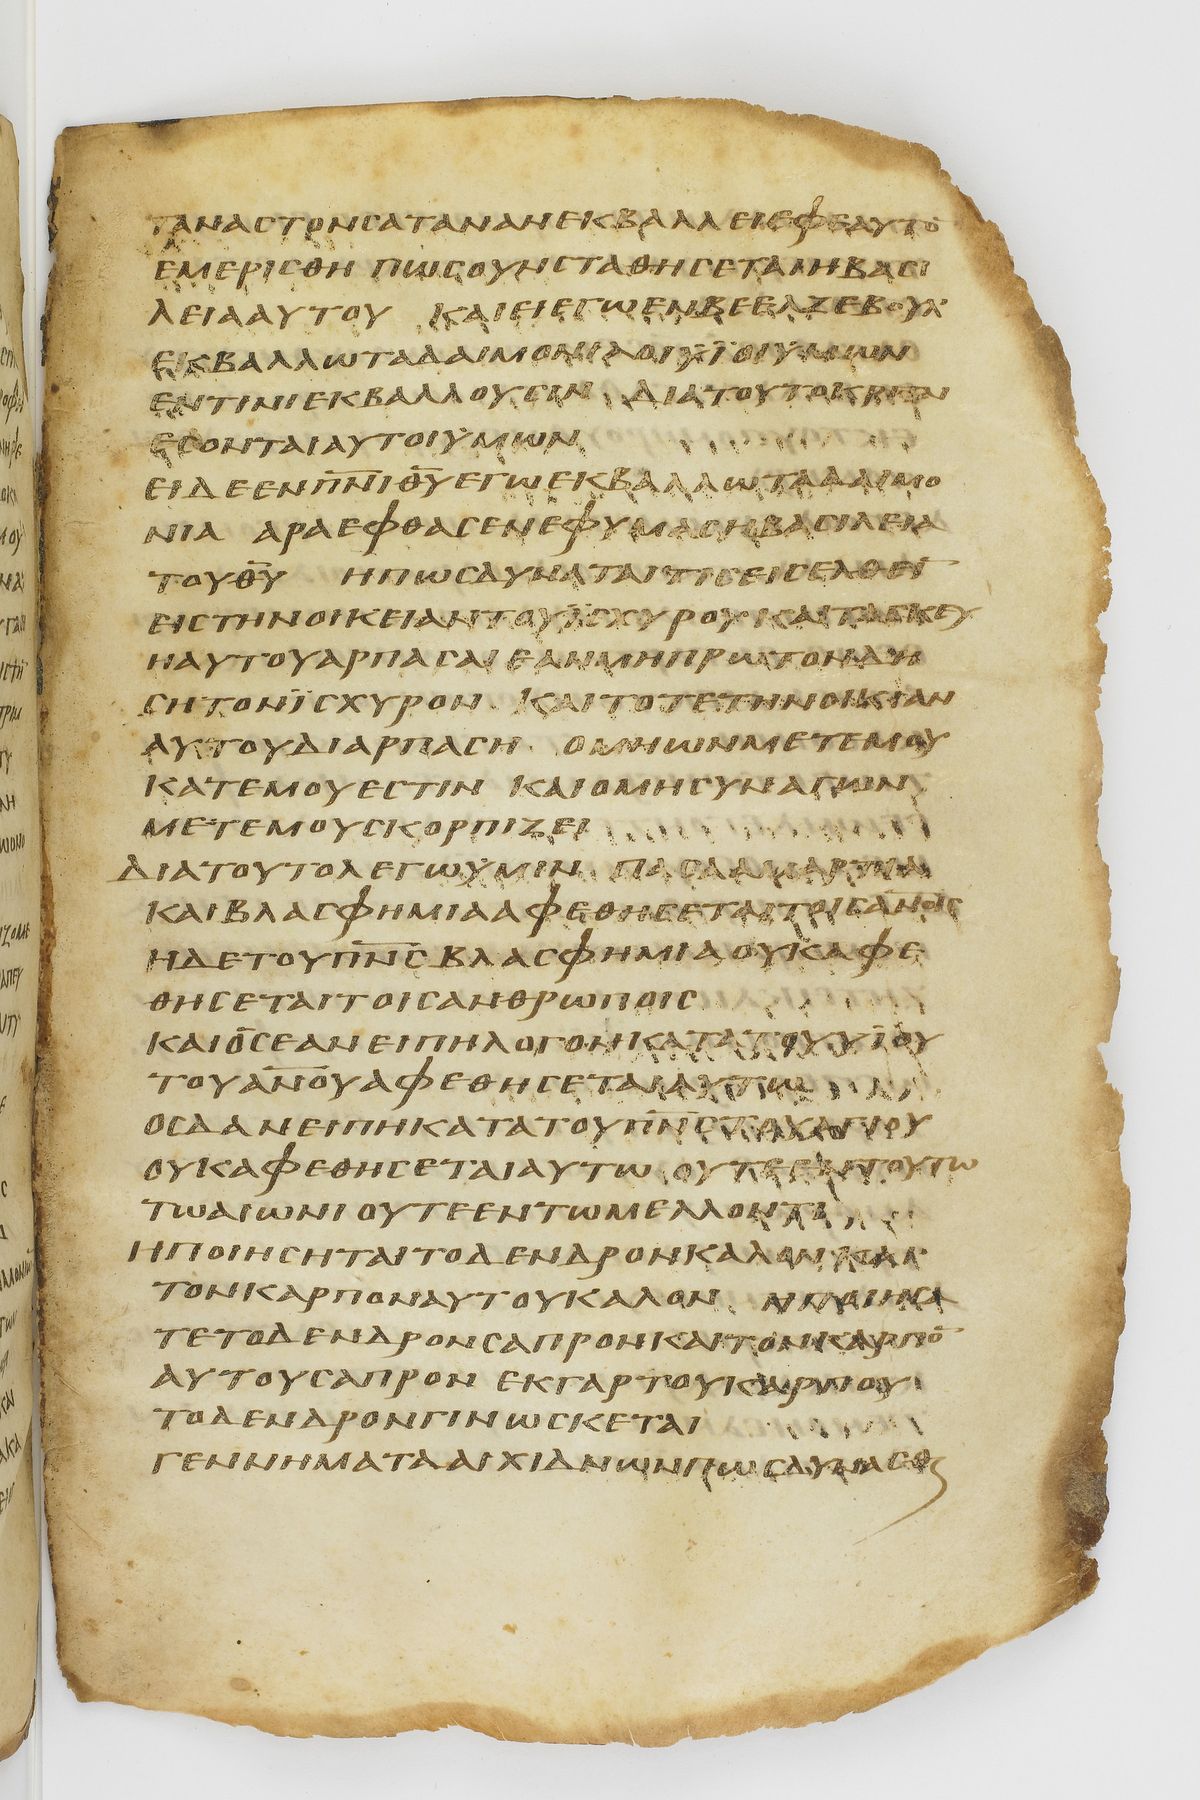 ΤΑΝΑϹΤΟΝϹΑΤΑΝΑΝΕΚΒΑΛΛΕΙΕΦΕΑΥΤΟ̅
ΕΜΕΡΙϹΘΗ ΠΩϹΟΥΝϹΤΑΘΗϹΕΤΑΙΗΒΑϹΙ
ΛΕΙΑΑΥΤΟΥ ΚΑΙΕΙΕΓΩΕΝΒΕΕΛΖΕΒΟΥΛ
ΕΚΒΑΛΛΩΤΑΔΑΙΜΟΝΙΑΟΙΥΪΟΙΥΜΩΝ
ΕΝΤΙΝΙΕΚΒΑΛΛΟΥϹΙΝ ΔΙΑΤΟΥΤΟΚΡΙΤΑΙ
ΕϹΟΝΤΑΙΑΥΤΟΙΥΜΩΝ
ΕΙΔΕΕΝΠ̅Ν̅Ι̅Θ̅Υ̅ΕΓΩΕΚΒΑΛΛΩΤΑΔΑΙΜΟ
ΝΙΑ ΑΡΑΕΦΘΑϹΕΝΕΦΥΜΑϹΗΒΑϹΙΛΕΙΑ
ΤΟΥΘ̅Υ̅ ΗΠΩϹΔΥΝΑΤΑΙΤΙϹΕΙϹΕΛΘΕΙ
ΕΙϹΤΗΝΟΙΚΕΙΑΝΤΟΥΪϹΧΥΡΟΥΚΑΙΤΑϹΚΕΥ
ΗΑΥΤΟΥΑΡΠΑϹΑΙΕΑΝΜΗΠΡΩΤΟΝΔΗ
ϹΗΤΟΝΪϹΧΥΡΟΝ ΚΑΙΤΟΤΕΤΗΝΟΙΚΙΑΝ
ΑΥΤΟΥΔΙΑΡΠΑϹΗ ΟΜΗΩΝΜΕΤΕΜΟΥ
ΚΑΤΕΜΟΥΕϹΤΙΝ ΚΑΙΟΜΗϹΥΝΑΓΩΝ
ΜΕΤΕΜΟΥϹΚΟΡΠΙΖΕΙ
ΔΙΑΤΟΥΤΟΛΕΓΩΥΜΙΝ ΠΑϹΑΑΜΑΡΤΙΑ
ΚΑΙΒΛΑϹΦΗΜΙΑΑΦΕΘΗϹΕΤΑΙΤΟΙϹΑ̅Ν̅Ο̅Ι̅Ϲ̅
ΗΔΕΤΟΥΠ̅Ν̅Ϲ̅ΒΛΑϹΦΗΜΙΑΟΥΚΑΦΕ
ΘΗϹΕΤΑΙΤΟΙϹΑΝΘΡΩΠΟΙϹ
ΚΑΙΟϹΕΑΝΕΙΠΗΛΟΓΟΝΚΑΤΑΤΟΥΥΪΟΥ
ΤΟΥΑ̅Ν̅Ο̅Υ̅ΑΦΕΘΗϹΕΤΑΙΑΥΤΩ
ΟϹΔΑΝΕΙΠΗΚΑΤΑΤΟΥΠ̅Ν̅Ϲ̅ΤΟΥΑΓΙΟΥ
ΟΥΚΑΦΕΘΗϹΕΤΑΙΑΥΤΩ ΟΥΤΕΕΝΤΟΥΤΩ
ΤΩΑΙΩΝΙΟΥΤΕΕΝΤΩΜΕΛΛΟΝΤΙ
ΗΠΟΙΗϹΗΤΑΙΤΟΔΕΝΔΡΟΝΚΑΛΟΝΚΑΙ
ΤΟΝΚΑΡΠΟΝΑΥΤΟΥΚΑΛΟΝ ΗΠΟΙΗϹΑ
ΤΕΤΟΔΕΝΔΡΟΝϹΑΠΡΟΝΚΑΙΤΟΝΚΑΡΠΟ̅
ΑΥΤΟΥϹΑΠΡΟΝ ΕΚΓΑΡΤΟΥΚΑΡΠΟΥ
ΤΟΔΕΝΔΡΟΝΓΙΝΩϹΚΕΤΑΙ
ΓΕΝΝΗΜΑΤΑΑΙΧΙΔΝΩΝΠΩϹΔΥΝΑϹΘΑΙ